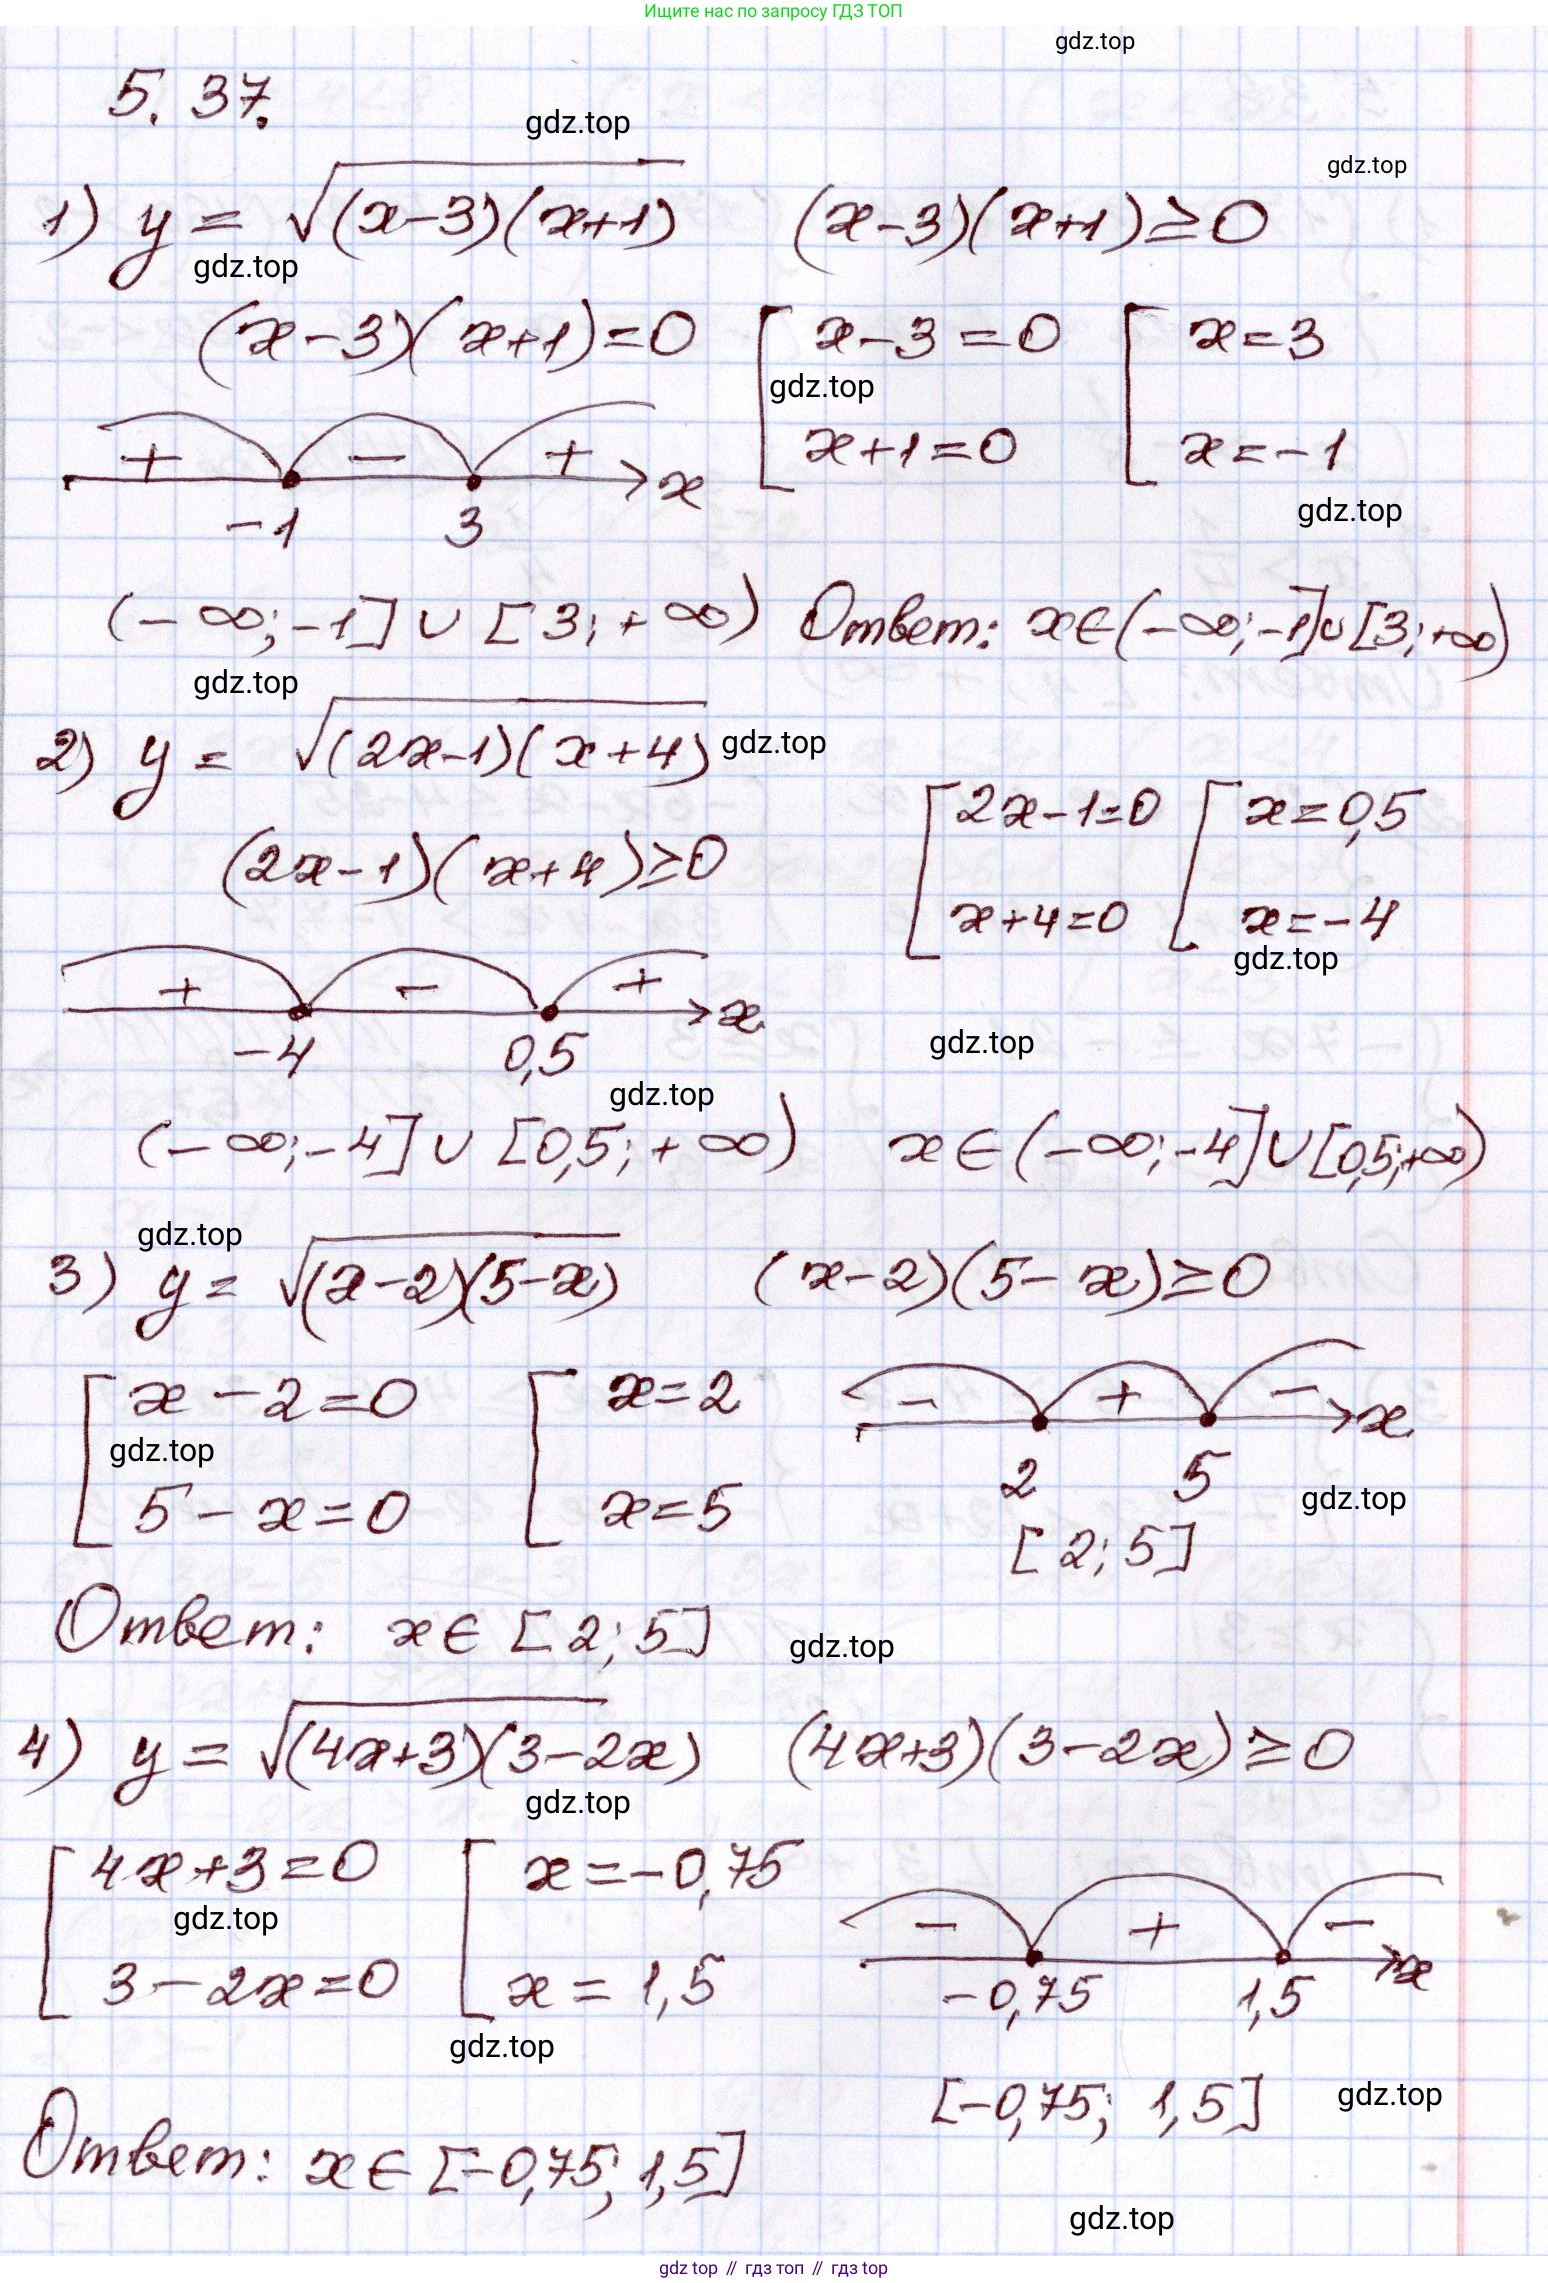 Ищите нас по запросу ГДЗ ТОП
gdz.top
5.37.
gdz.top
gdz.top
1) y = √(x-3)(x+1) (x-3)(x+1) ≥ 0
gdz.top
(x-3)(x+1)=0 [ x-3=0 [ x=3
gdz.top
x+1=0 x=-1
+ - + x
-1 3
gdz.top
(-∞;-1] ∪ [3;+∞) Ответ: x∈(-∞;-1]∪[3;+∞)
gdz.top
2) y = √(2x-1)(x+4)
gdz.top
[ 2x-1=0 [ x=0,5
(2x-1)(x+4)≥0
x+4=0 x=-4
gdz.top
+ - + x
-4 0,5
gdz.top
gdz.top
(-∞;-4] ∪ [0,5;+∞) x∈(-∞;-4]∪[0,5;+∞)
gdz.top
3) y = √(x-2)(5-x) (x-2)(5-x)≥0
[ x-2=0 [ x=2
- + - x
gdz.top
2 5
5-x=0 x=5
gdz.top
[2;5]
Ответ: x∈[2;5]
gdz.top
4) y = √(4x+3)(3-2x) (4x+3)(3-2x)≥0
gdz.top
[ 4x+3=0 [ x=-0,75
gdz.top
- + - x
3-2x=0 x=1,5
-0,75 1,5
gdz.top
[-0,75; 1,5]
gdz.top
Ответ: x∈[-0,75;1,5]
gdz.top
gdz top // гдз топ // гдз top